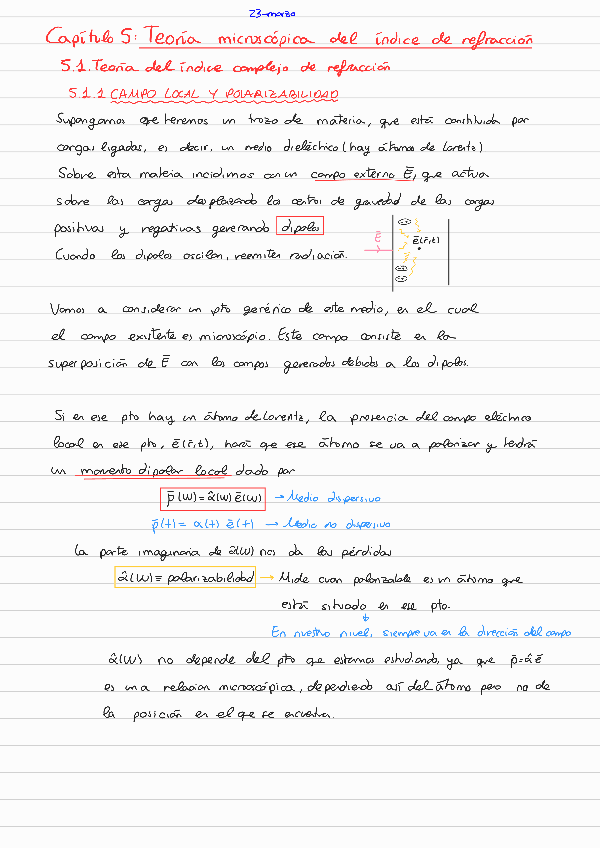 23-marzo
Capítulo 5: Teoría microscópica del índice de refracción
5.1. Teoría del índice complejo de refracción
5.1.1 CAMPO LOCAL Y POLARIZABILIDAD
Supongamos que tenemos un trozo de materia, que está constituida por
cargas ligadas, es decir, un medio dieléctrico (hay átomos de Lorentz)
Sobre esta materia incidimos con un campo externo E̅, que actúa
sobre las cargas desplazando los centros de gravedad de las cargas
positivas y negativas generando dipolos
Cuando los dipolos oscilan, reemiten radiación.
E̅
e̅(r̅,t)
Vamos a considerar un pto genérico de este medio, en el cual
el campo existente es microscópio. Este campo consiste en la
superposición de E̅ con los campos generados debidos a los dipolos.
Si en ese pto hay un átomo de Lorentz, la presencia del campo eléctrico
local en ese pto, e̅(r̅,t), hará que ese átomo se va a polarizar y tendrá
un momento dipolar local dado por
p̅(ω) = α̂(ω) e̅(ω) → Medio dispersivo
p̅(t) = α(t) e̅(t) → Medio no dispersivo
La parte imaginaria de α̂(ω) nos da las pérdidas
α̂(ω) ≡ polarizabilidad → Mide cuan polarizable es un átomo que
está situado en ese pto.
↓
En nuestro nivel, siempre va en la dirección del campo
α̂(ω) no depende del pto que estamos estudiando, ya que p̅=α̂ e̅
es una relacion microscópica, dependiendo así del átomo pero no de
la posición en el que se encuentra.